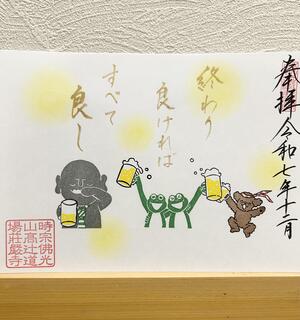 奉拝 令和七年十二月
終わり
良ければ
すべて
良し
時宗佛光
山髙辻道
場荘嚴寺